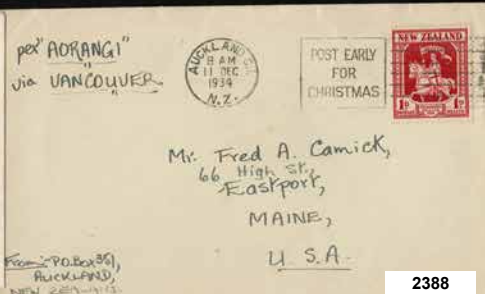 per "AORANGI"
via VANCOUVER
AUCKLAND
8 AM
11 DEC
1934
N.Z.
POST EARLY
FOR
CHRISTMAS
NEW ZEALAND
1D 1D
Mr. Fred A. Camick,
66 High St.,
Eastport,
MAINE,
U.S.A.
From:- P.O. Box 351,
AUCKLAND,
NEW ZEALAND.
2388